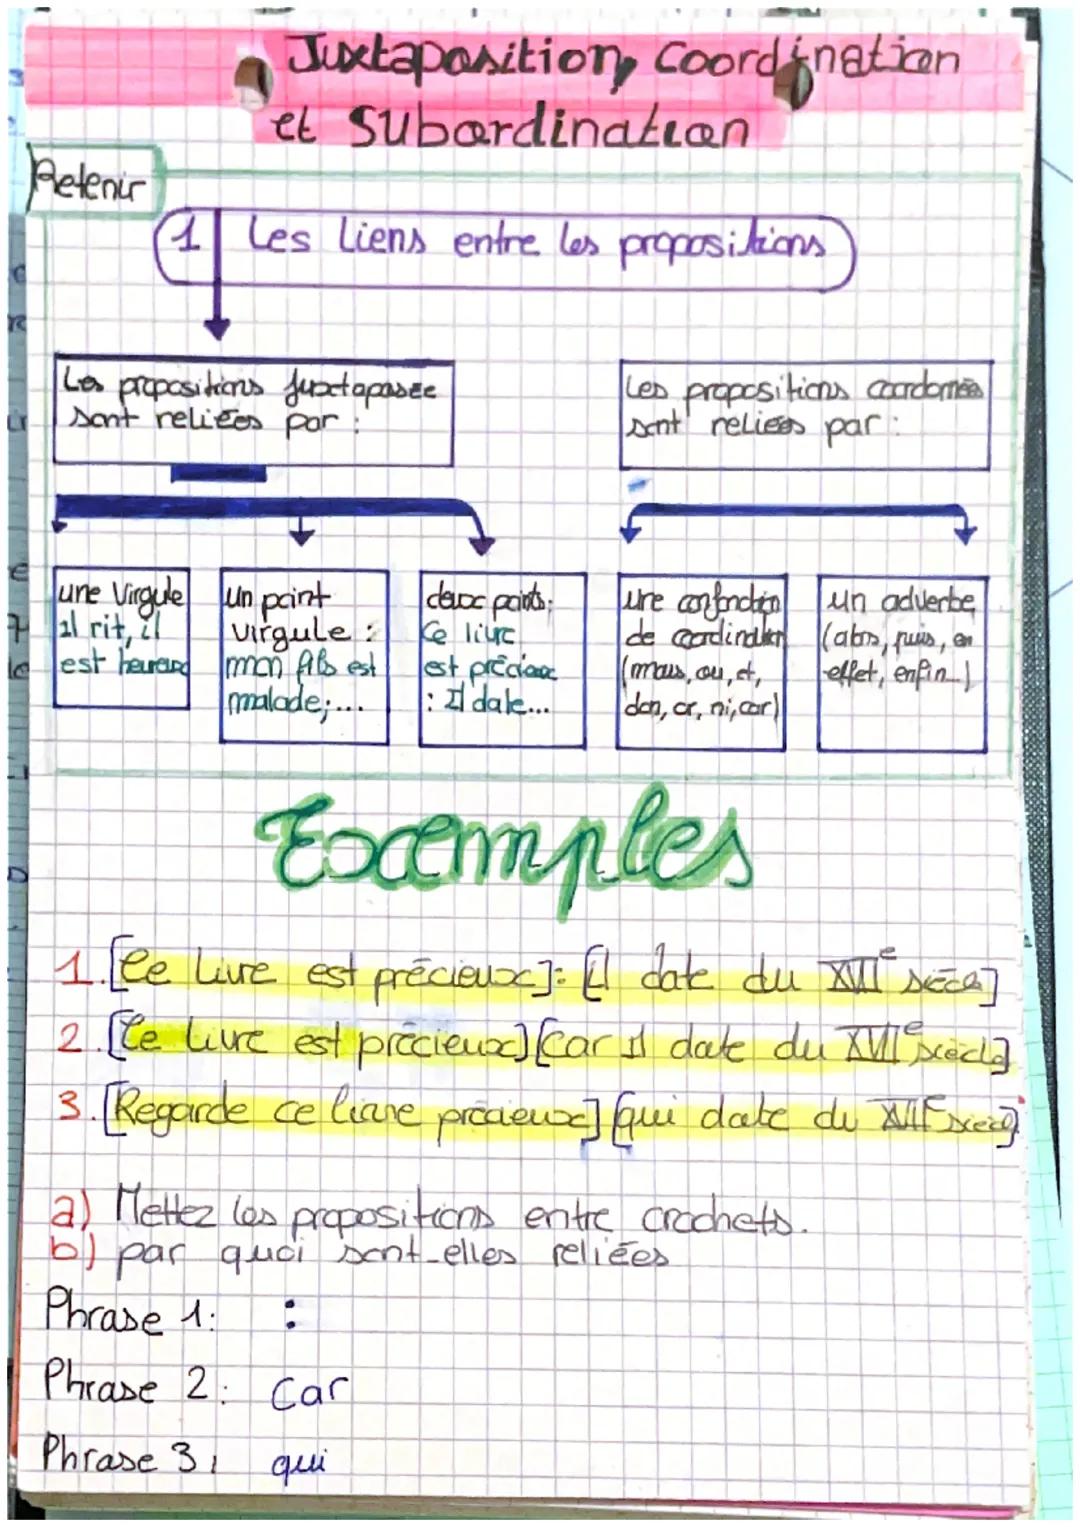 Juxtaposition, Coordination
et Subordination
Retenir
1 Les Liens entre les propositions
Les propositions juxtaposée
sont reliées par :
Les propositions coordonnés
sont reliées par :
une Virgule
Il rit, il
est heureux
un point
virgule :
mon fils est
malade;...
deux points:
Ce livre
est précieux
: Il date...
une conjonction
de coordination
(mais, ou, et,
don, or, ni, car)
un adverbe
(alors, puis, en
effet, enfin...)
Exemples
1. [Ce livre est précieux]: [Il date du XVIIe siècle]
2. [Ce livre est précieux] [car il date du XVIIe siècle]
3. [Regarde ce livre précieux] [qui date du XVIIe siècle].
a) Mettez les propositions entre crochets.
b) par quoi sont-elles reliées
Phrase 1: :
Phrase 2: Car
Phrase 3: qui